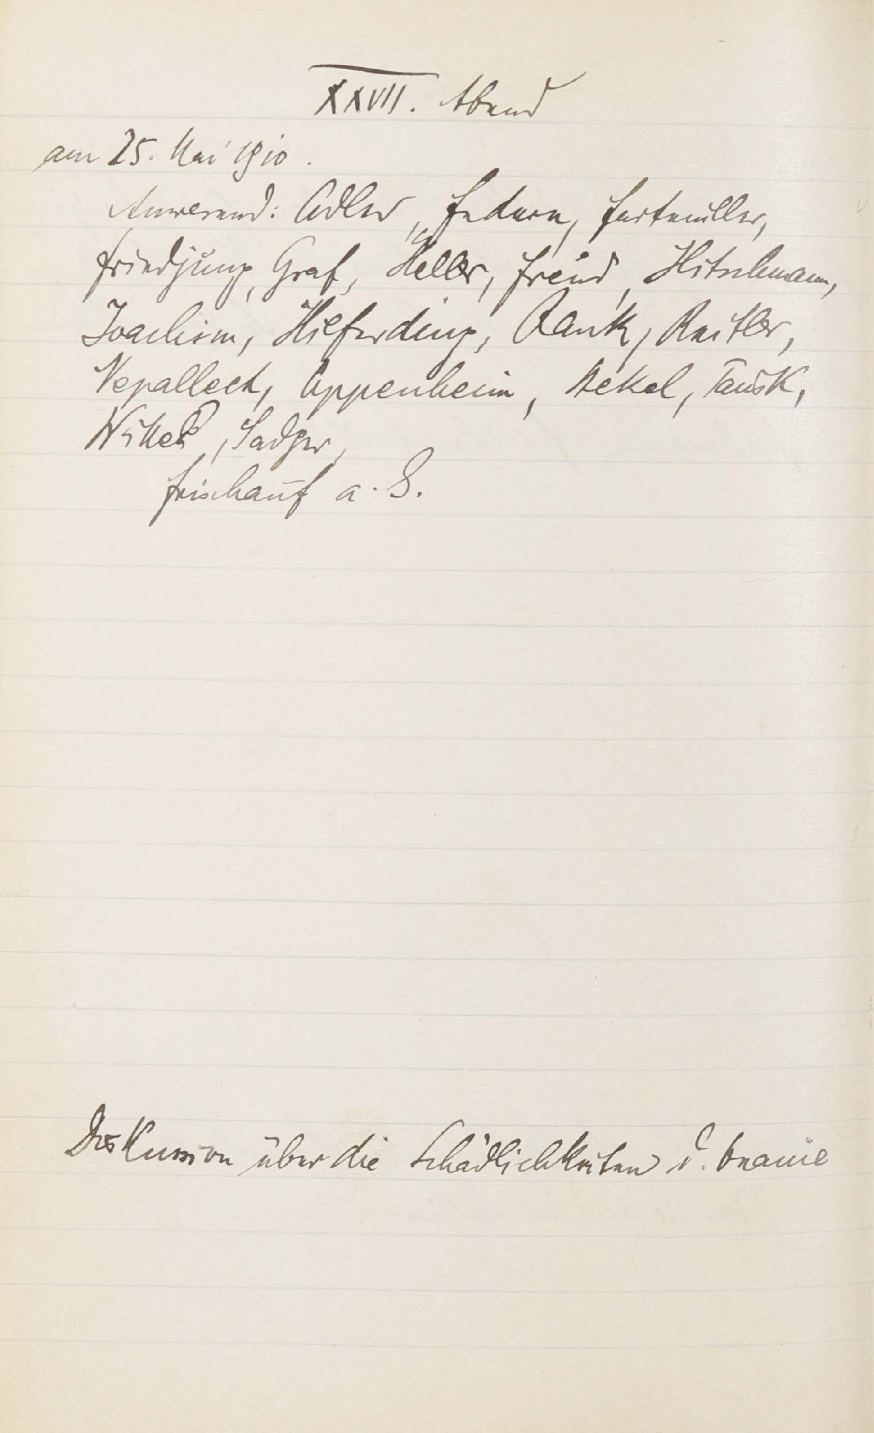 XXVII. Abend
am 25. Mai 1910.
Anwesend: Adler, Federn, Furtmüller,
Friedjung, Graf, Heller, Freud, Hitschmann,
Joachim, Hilferding, Rank, Reitler,
Nepalleck, Oppenheim, Stekel, Tausk,
Wittels, Sadger,
Frischauf a. G.
Diskussion über die Schädlichkeiten d. Onanie